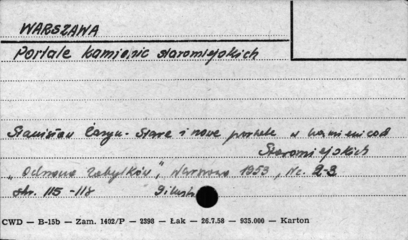 WARSZAWA
Portale kamienic staromiejskich
Stanisław Łoza. Stare i nowe portale w kamienicach
Staromiejskich
"Ochrona Zabytków", Warszawa 1953, Nr. 2-3
str. 115-118
CWD — B-15b — Zam. 1402/P — 2398 — Łak — 26.7.58 — 935.000 — Karton